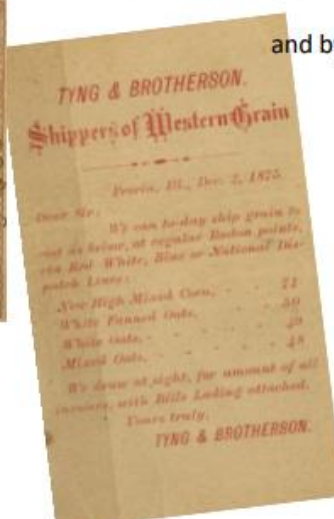 and b
TYNG & BROTHERSON.
Shippers of Western Grain
Peoria, Ill., Dec. 2, 1875.
Dear Sir:
We can to-day ship grain to
out as below, at regular Boston points,
via Red, White, Blue or National Dis-
patch Lines:
New High Mixed Corn, - -
White Fanned Oats, - - 50
White Oats, - - - 49
Mixed Oats, - - - 48
We draw at sight, for amount of all
invoices, with Bills Lading attached.
Yours truly,
TYNG & BROTHERSON.